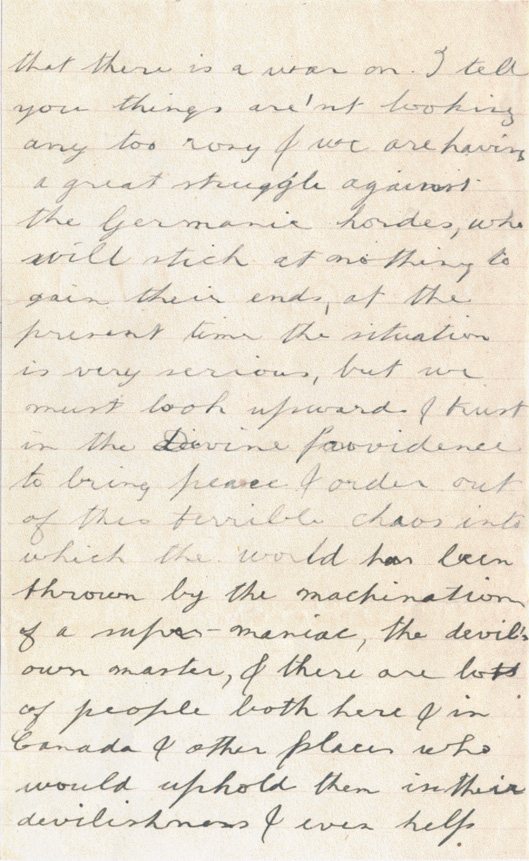 that there is a war on. I tell
you things are'nt looking
any too rosy & we are having
a great struggle against
the Germanic hordes, who
will stick at nothing to
gain their ends, at the
present time the situation
is very serious, but we
must look upward & trust
in the Devine Providence
to bring peace & order out
of this terrible chaos into
which the world has been
thrown by the machinations
of a super-maniac, the devil's
own master, & there are lots
of people both here & in
Canada & other places who
would uphold them in their
devilishness & even help